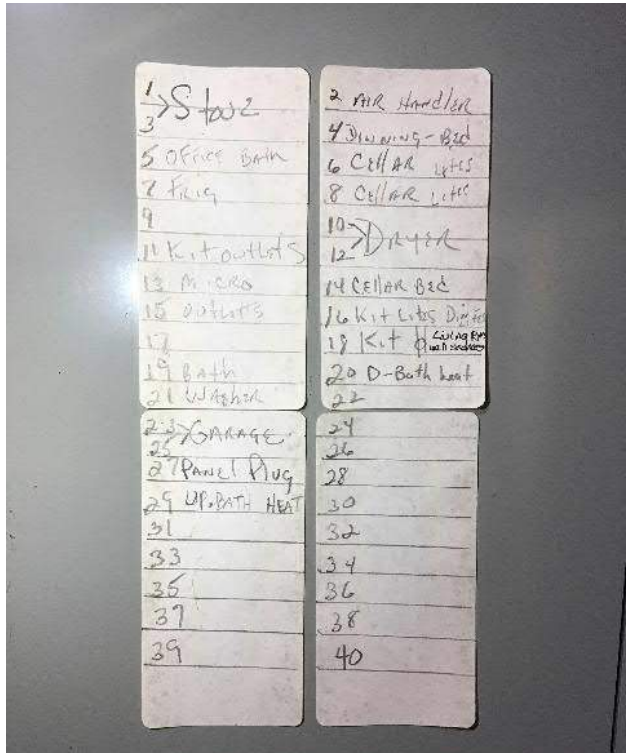 1
> Stove
3
5 OFFICE BATH
7 FRIG
9
11 Kit outlets
13 MICRO
15 outlets
17
19 Bath
21 WASHER
2 AIR HANDLER
4 DINNING-BED
6 CELLAR LITES
8 CELLAR LITES
10
> DRYER
12
14 CELLAR BED
16 Kit Lites
18 Kit
LIVING RM
20 D-Bath heat
22
23 > GARAGE
25
27 PANEL Plug
29 UP.BATH HEAT
31
33
35
37
39
24
26
28
30
32
34
36
38
40